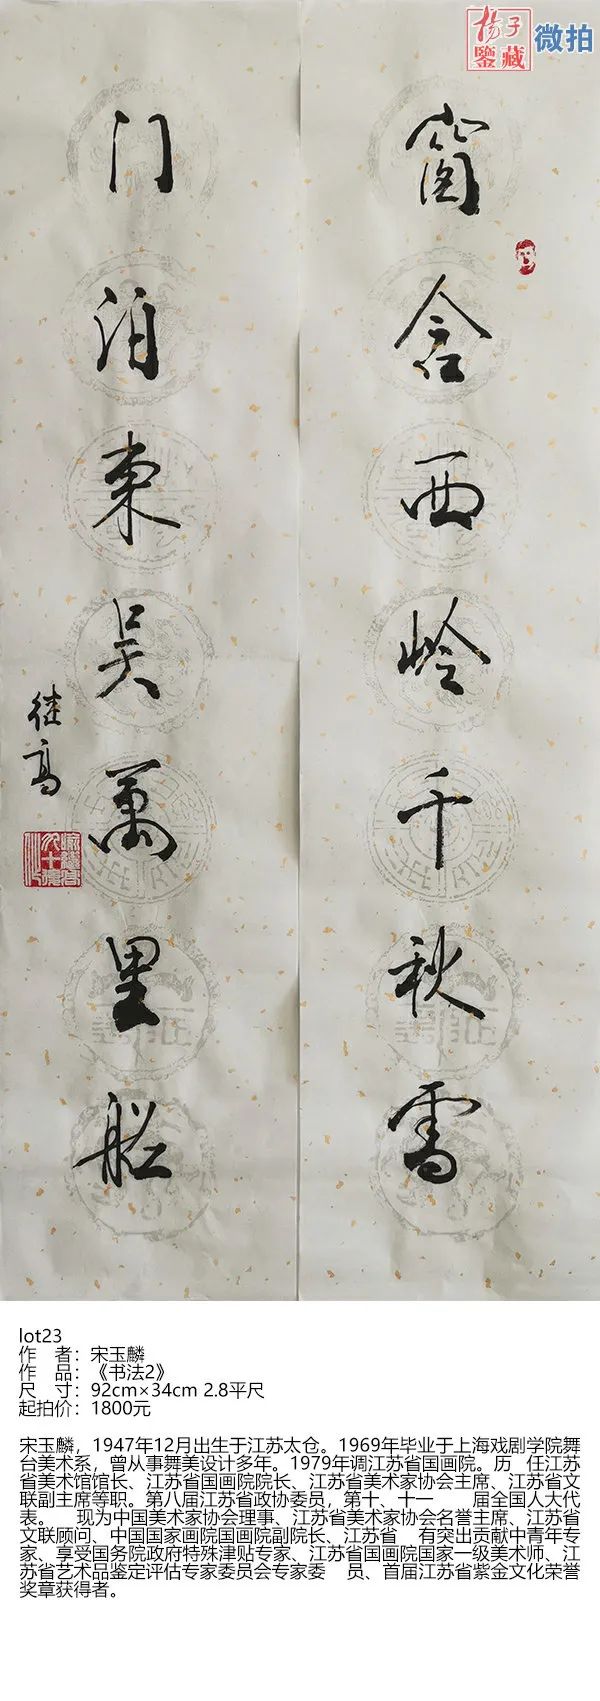 杨子
鑒藏
微拍
窗含西岭千秋雪
门泊東吴萬里船
继高
lot23
作　者：宋玉麟
作　品：《书法2》
尺　寸：92cm×34cm 2.8平尺
起拍价：1800元
宋玉麟，1947年12月出生于江苏太仓。1969年毕业于上海戏剧学院舞
台美术系，曾从事舞美设计多年。1979年调江苏省国画院。历　任江苏
省美术馆馆长、江苏省国画院院长、江苏省美术家协会主席、江苏省文
联副主席等职。第八届江苏省政协委员，第十、十一　　届全国人大代
表。　现为中国美术家协会理事、江苏省美术家协会名誉主席、江苏省
文联顾问、中国国家画院国画院副院长、江苏省　有突出贡献中青年专
家、享受国务院政府特殊津贴专家、江苏省国画院国家一级美术师、江
苏省艺术品鉴定评估专家委员会专家委　员、首届江苏省紫金文化荣誉
奖章获得者。